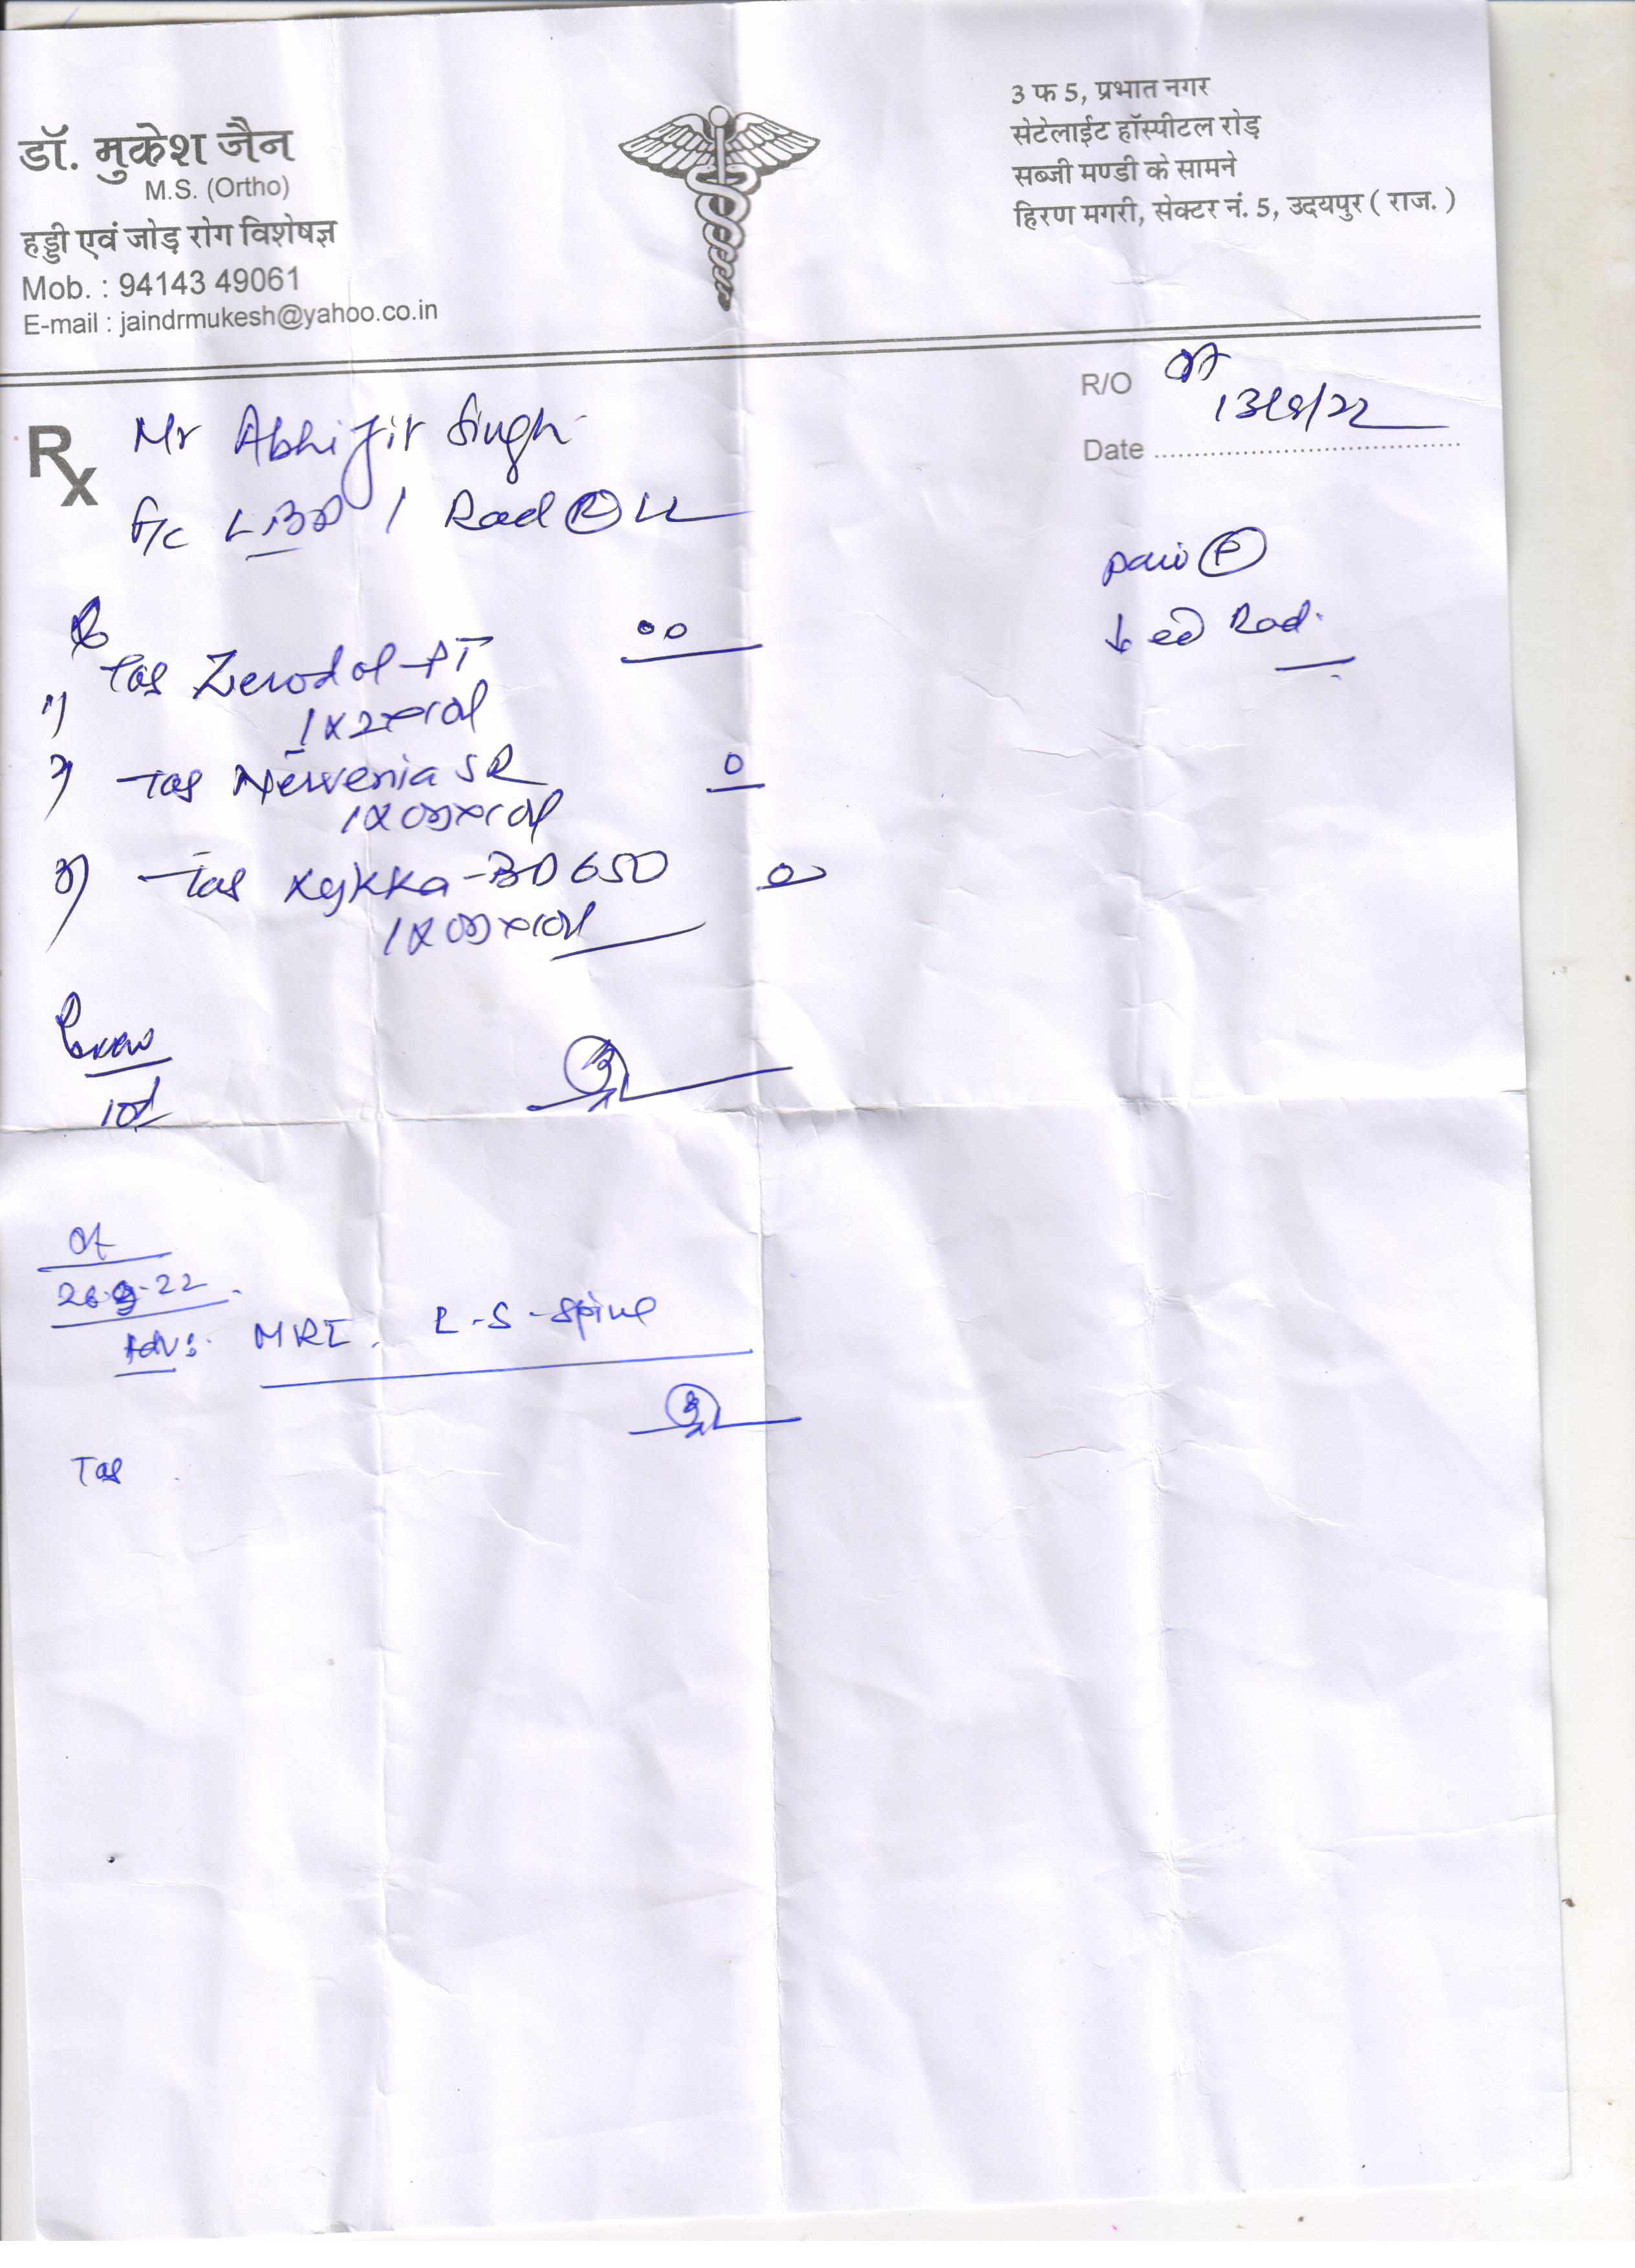 डॉ. मुकेश जैन
M.S. (Ortho)
हड्डी एवं जोड़ रोग विशेषज्ञ
Mob. : 94143 49061
E-mail : jaindrmukesh@yahoo.co.in
3 फ 5, प्रभात नगर
सेटेलाईट हॉस्पीटल रोड़
सब्जी मण्डी के सामने
हिरण मगरी, सेक्टर नं. 5, उदयपुर ( राज. )
R/O
Date
Rx Mr Abhijit Singh
LBP / Rad Ⓡ LL
pain
↓ed Rad.
1) Tab Zerodol-PT
1x2x10d
2) Tab Nervenia SR
1x x10d
3) Tab -BD 650
1x x10d
10d
26.9.22
Adv:. MRI. L-S-Spine
Tab